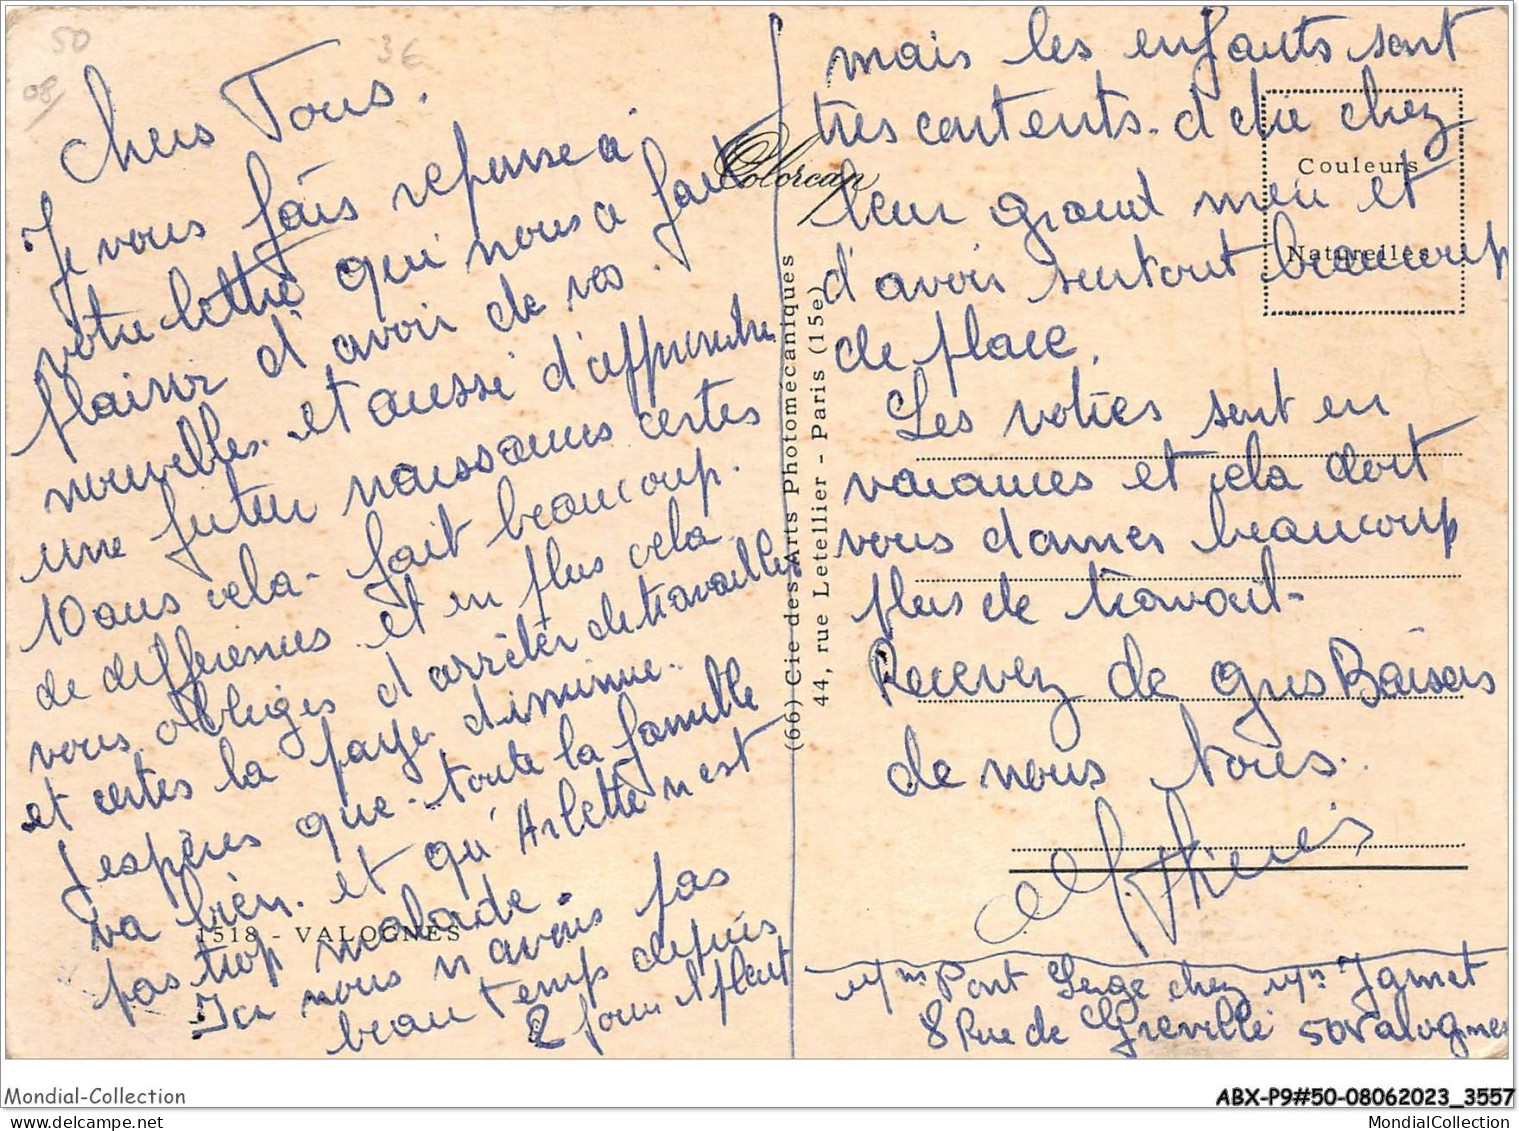 50
3€
08/
Chers Tous.
Je vous fais reponse a
votre lettre qui nous a fait
plaisir d'avoir de vos
nouvelles. et aussi d'apprendre
une futur naissances certes
10 ans cela fait beaucoup.
de differences et en plus cela
vous obliges d'arrêter de travailler
et certes la paye diminue.
J'espères que toute la famille
va bien. et qu'Arlette n'est
pas trop malade.
Ici nous n'avons pas
beau temps depuis
2 jours il pleut
1518 - VALOGNES
Colorcap
(66) Cie des Arts Photomécaniques
44, rue Letellier - Paris (15e)
Couleurs
Naturelles
mais les enfants sont
tres contents. d'etre chez
leur grand mere et
d'avoir surtout beaucoup
de place.
Les votres sont en
vacances et cela doit
vous donner beaucoup
plus de travail-
Recevez de gros Baisers
de nous tous.
Mm Pont Serge chez Mm Jamet
8 Rue de Greville 50 Valognes
Mondial-Collection
ABX-P9#50-08062023_3557
MondialCollection